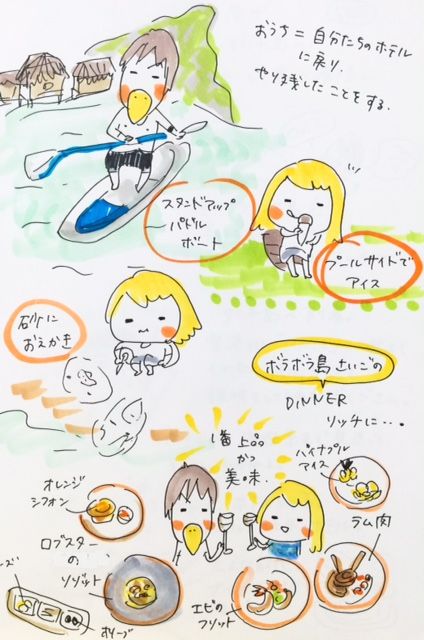 おうち＝自分たちのホテル
に戻り、
やり残したことをする。
スタンドアップ
パドル
ボート
プールサイドで
アイス
砂に
おえかき
ボラボラ島さいごの
DINNER
リッチに・・・
一番上品
かつ
美味
パイナプル
アイス
オレンジ
シフォン
ラム肉
ロブスター
の
リゾット
エビの
フリット